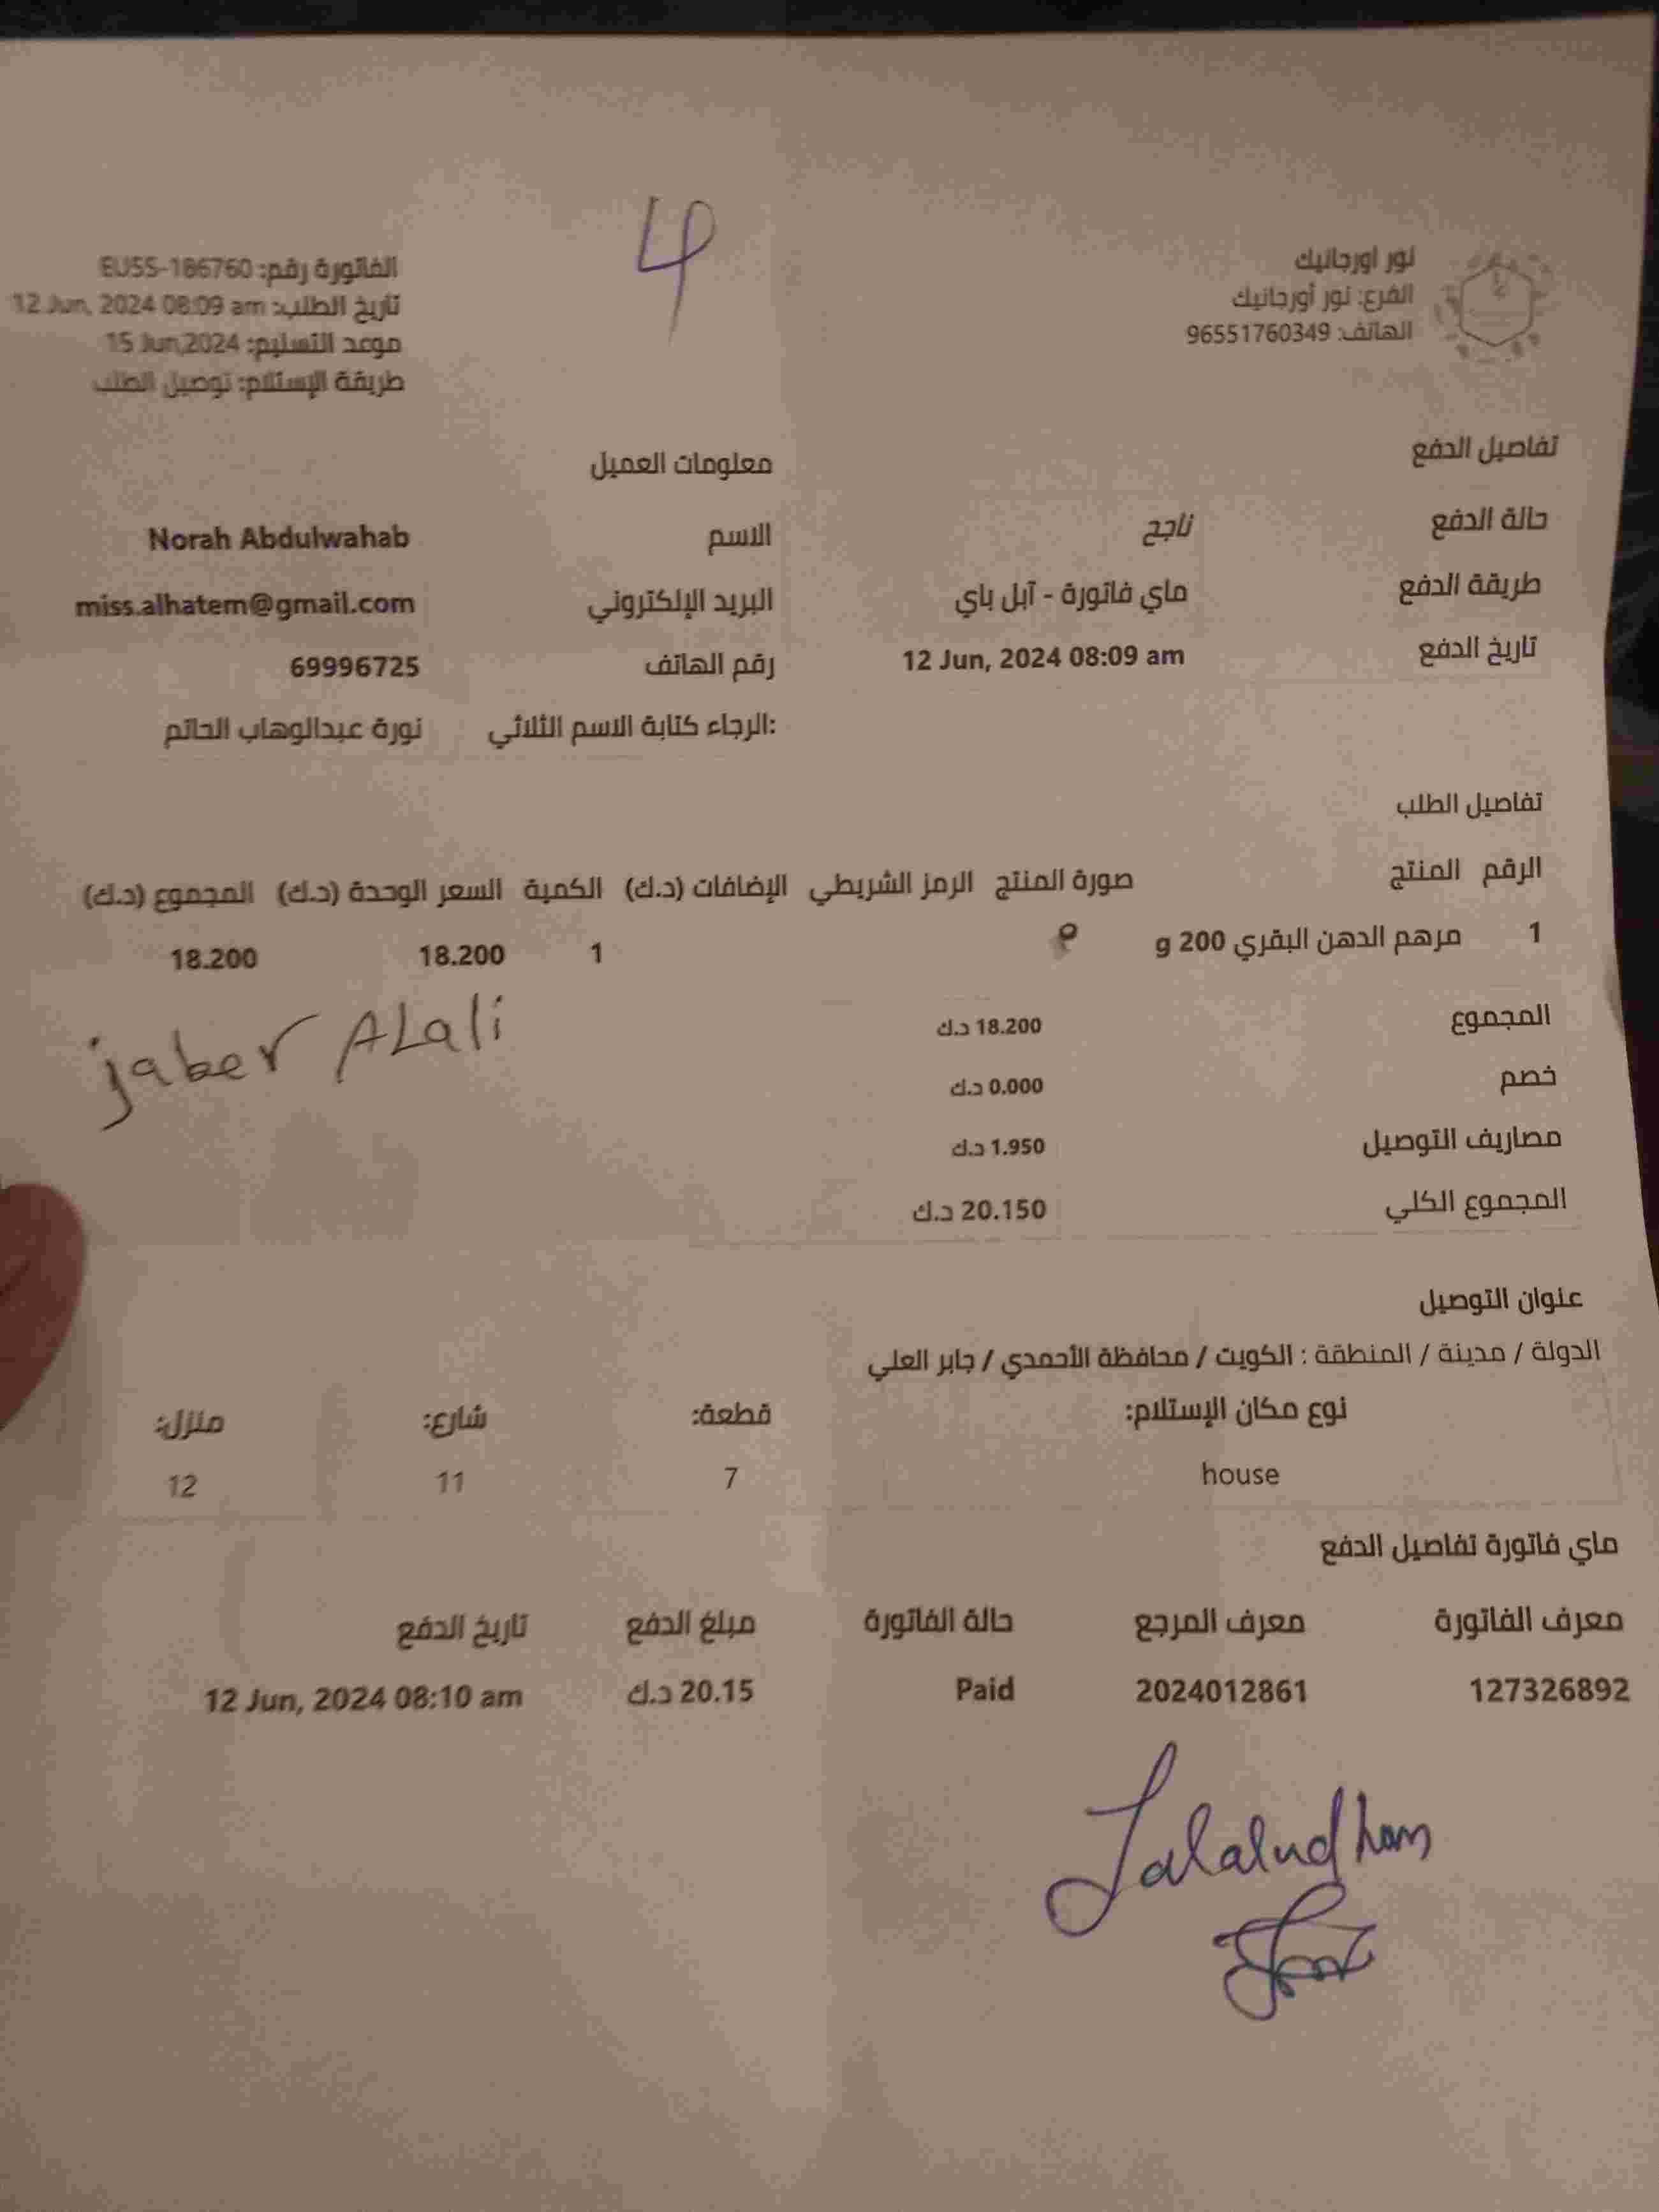 نور اورجانيك
الفرع: نور أورجانيك
الهاتف: 96551760349
4
الفاتورة رقم: EU55-186760
تاريخ الطلب: 12 Jun, 2024 08:09 am
موعد التسليم: 15 Jun,2024
طريقة الإستلام: توصيل الطلب
تفاصيل الدفع
حالة الدفع ناجح
طريقة الدفع ماي فاتورة - آبل باي
تاريخ الدفع 12 Jun, 2024 08:09 am
معلومات العميل
الاسم Norah Abdulwahab
البريد الإلكتروني miss.alhatem@gmail.com
رقم الهاتف 69996725
:الرجاء كتابة الاسم الثلاثي نورة عبدالوهاب الحاتم
تفاصيل الطلب
الرقم المنتج صورة المنتج الرمز الشريطي الإضافات (د.ك) الكمية السعر الوحدة (د.ك) المجموع (د.ك)
1 مرهم الدهن البقري 200 g 1 18.200 18.200
jaber ALali
المجموع 18.200 د.ك
خصم 0.000 د.ك
مصاريف التوصيل 1.950 د.ك
المجموع الكلي 20.150 د.ك
عنوان التوصيل
الدولة / مدينة / المنطقة : الكويت / محافظة الأحمدي / جابر العلي
نوع مكان الإستلام: قطعة: شارع: منزل:
house 7 11 12
ماي فاتورة تفاصيل الدفع
معرف الفاتورة معرف المرجع حالة الفاتورة مبلغ الدفع تاريخ الدفع
127326892 2024012861 Paid 20.15 د.ك 12 Jun, 2024 08:10 am